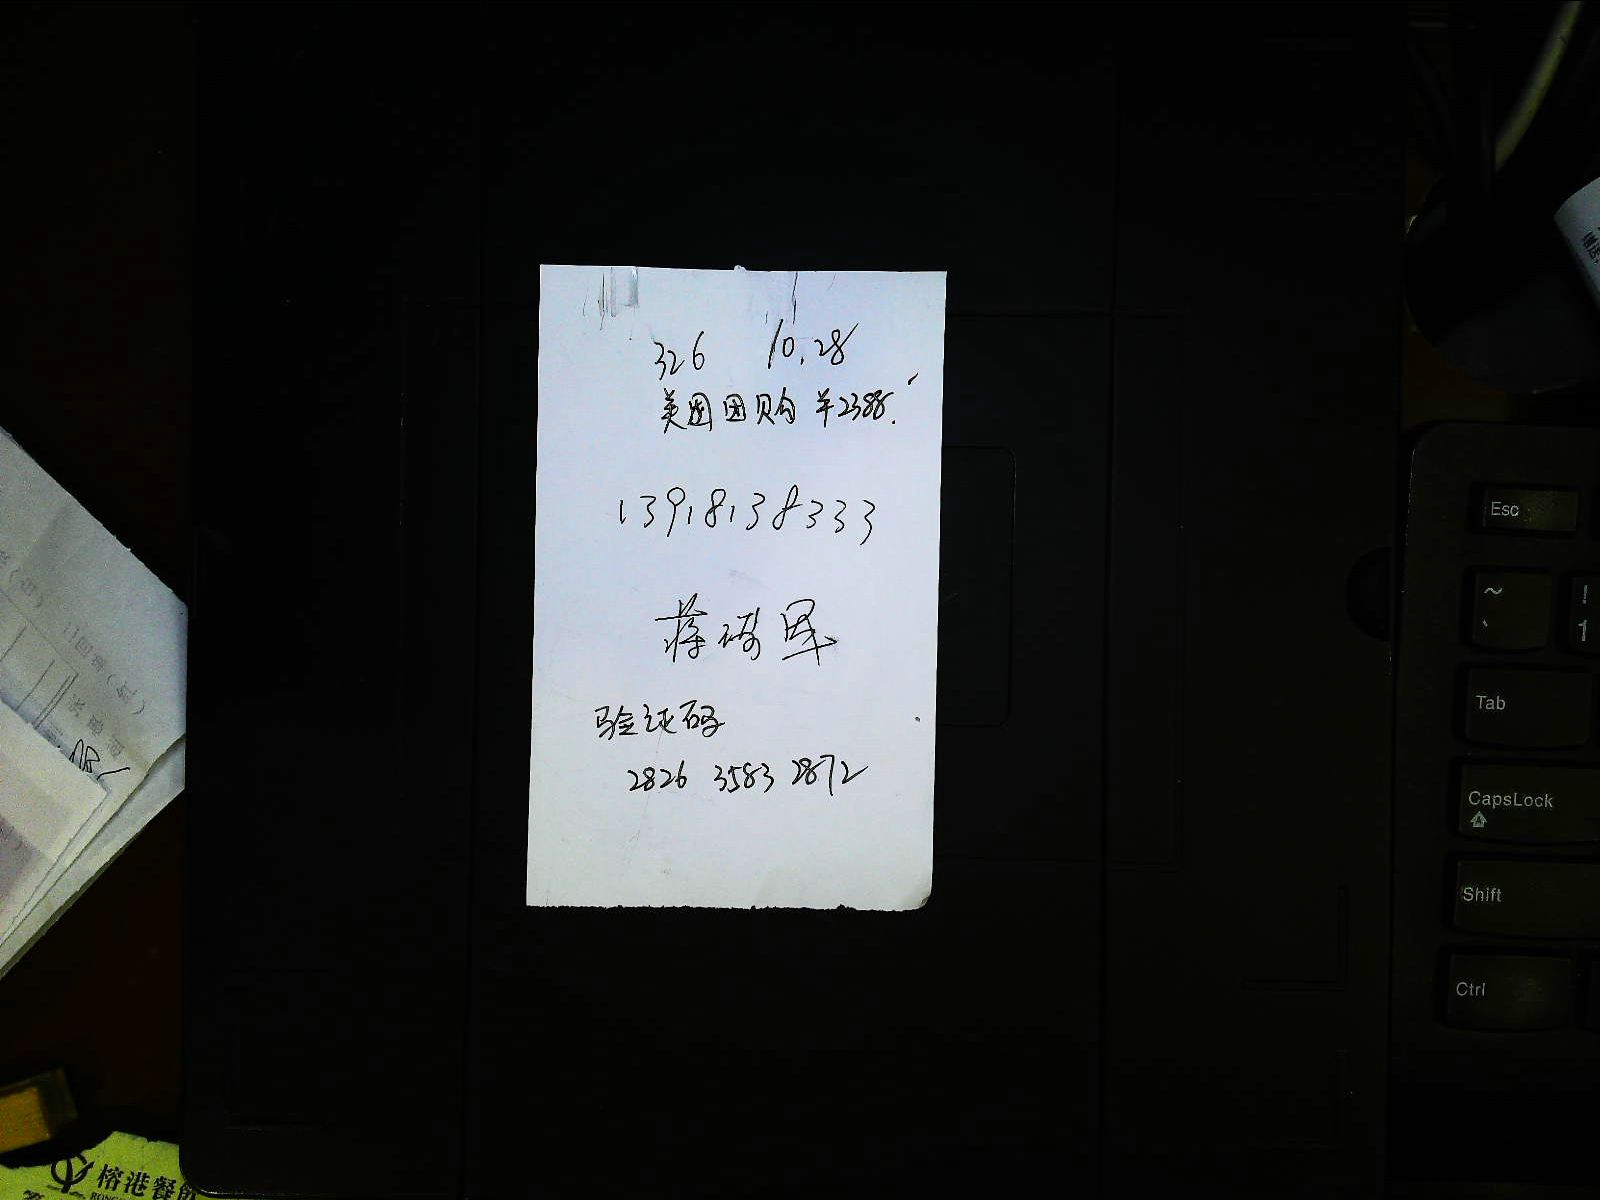 326 10.28
美团团购 ¥2388.
13918138333
蒋
验证码
2826 3583 2872
Esc
~
`
!
1
Tab
CapsLock
Shift
Ctrl
榕港餐飲